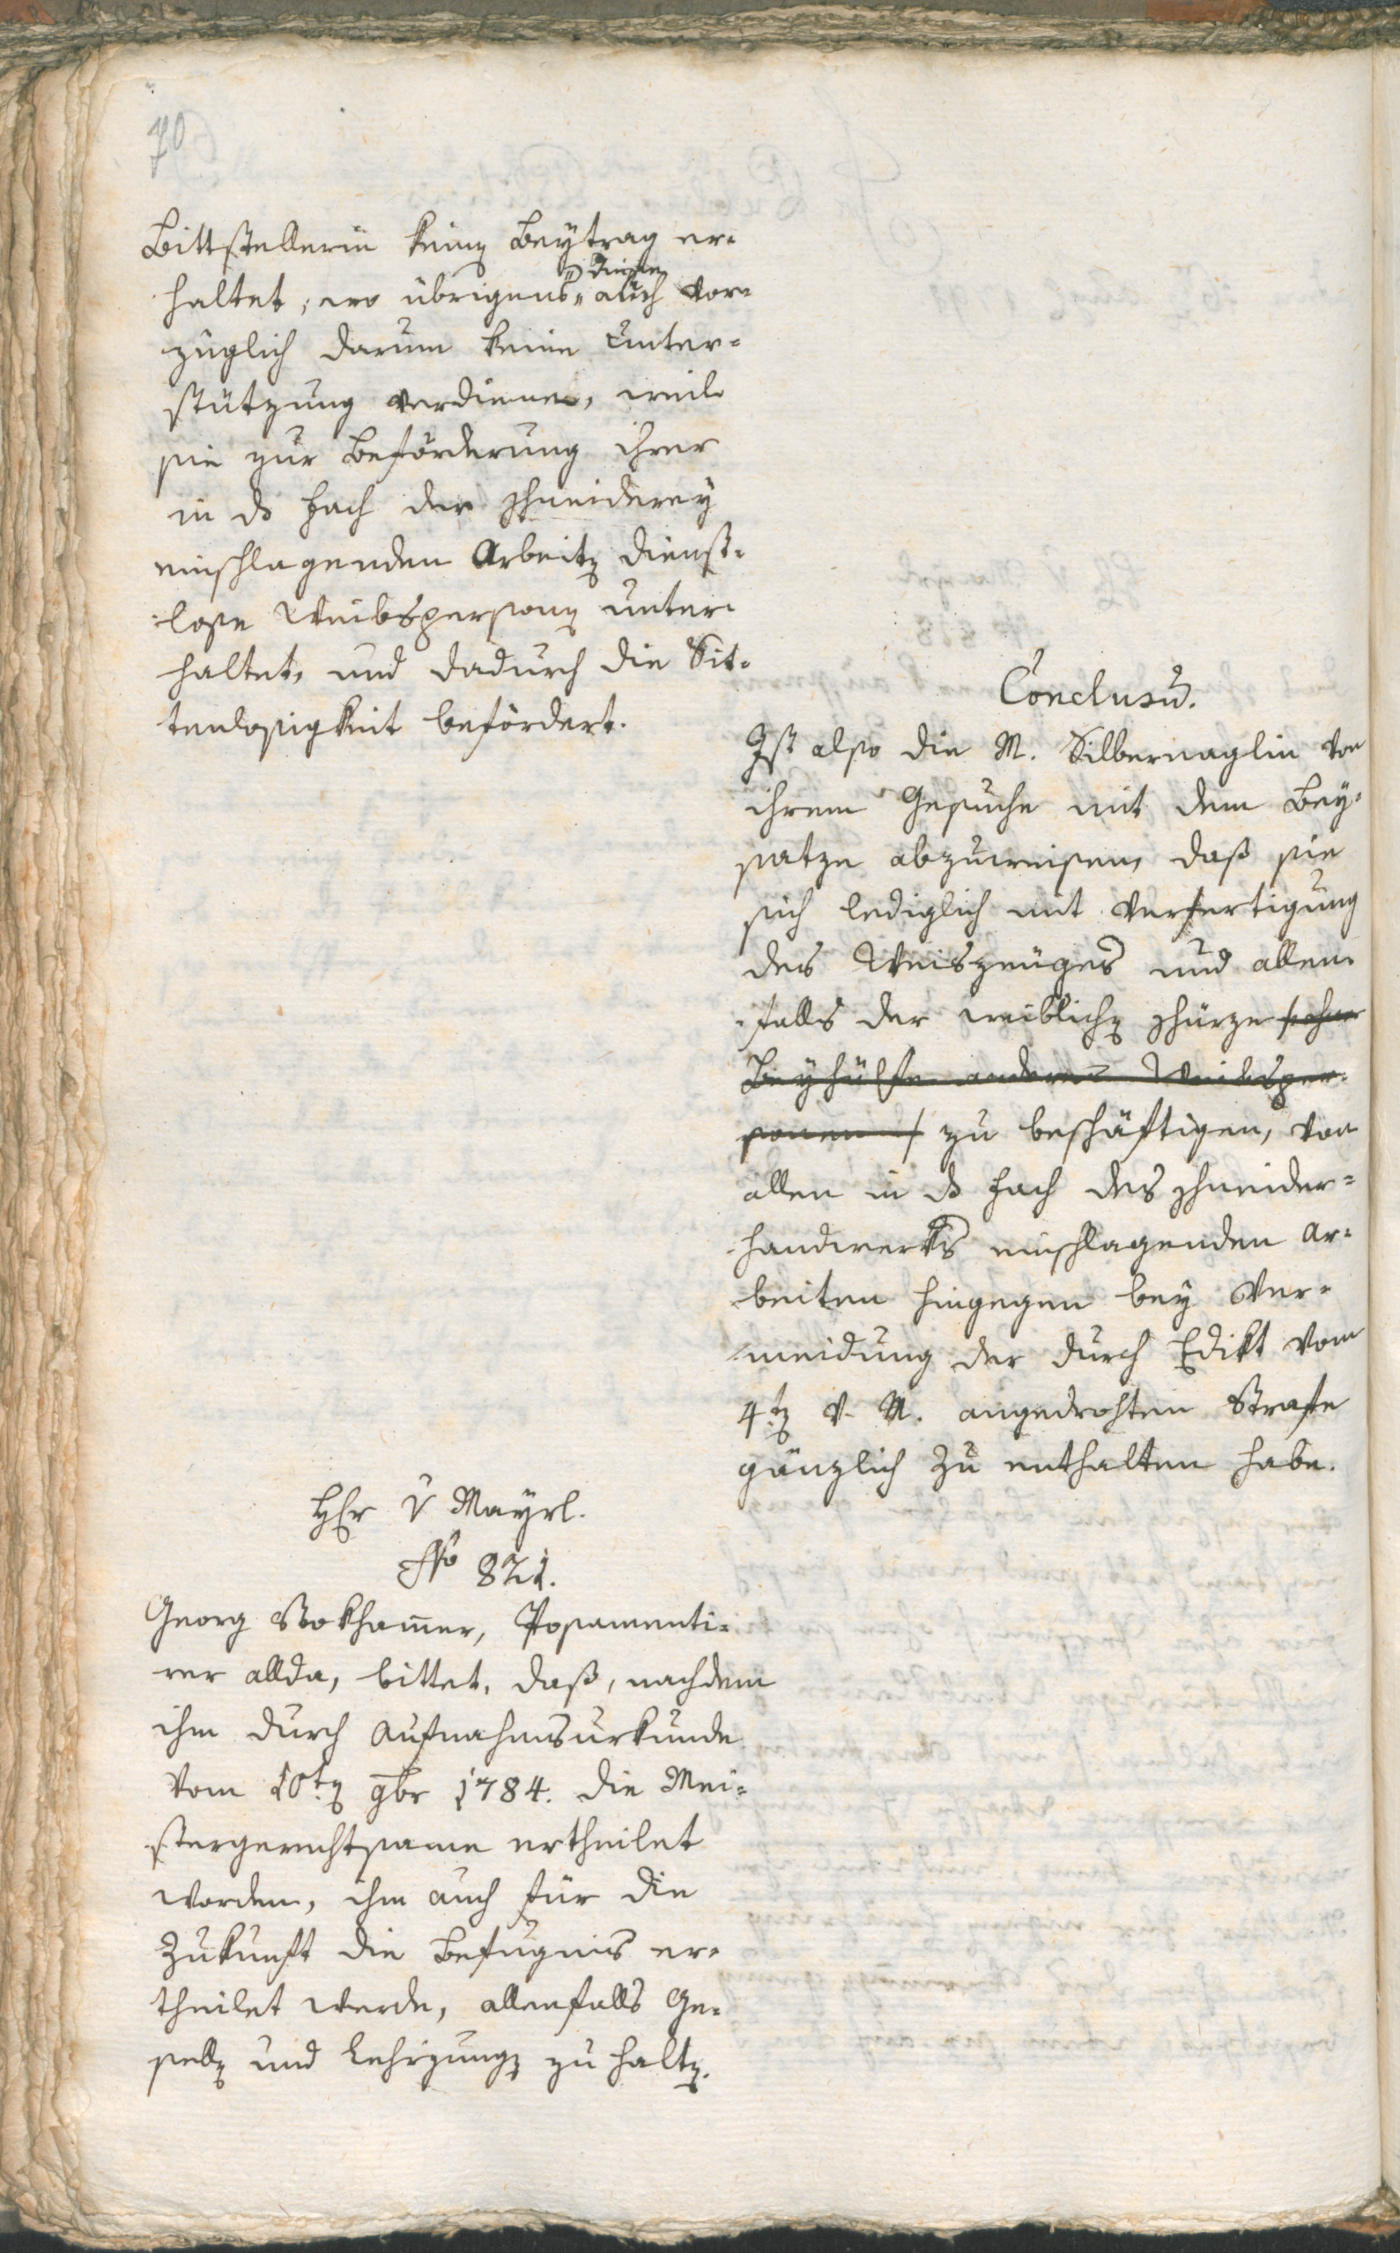 70
Bittstellerin keinen Beytrag er-
haltet, wo übrigens auch vor-
diese
züglich darum keine Unter-
stützung verdiene, weil
sie zur Beförderung ihrer
in ds Fach der Schneiderey
einschlagenden Arbeiten dienst-
lose Weibspersonen unter-
haltet, und dadurch die Sit-
tenlosigkeit befördert.
Conclusum.
Ist also die M. Silbernaglin von
ihrem Gesuche mit dem Bey-
satze abzuweisen, daß sie
sich lediglich mit Verfertigung
des Weiszeuges und allen-
falls der weiblichen Schürze /: ohne
Beyhülfe anderer Weibsper-
sonen :/ zu beschäftigen, von
allen in ds Fach des Schneider-
handwerks einschlagenden Ar-
beiten hingegen bey Ver-
meidung der durch Edikt vom
4ten v. M. angedrohten Strafe
gänzlich zu enthalten habe.
Hr v Mayrl.
No 821.
Georg Stokhamer, Posamenti-
rer allda, bittet, daß, nachdem
ihm durch Aufnahmsurkunde
vom 10ten 9br 1784. die Mei-
stergerechtsame ertheilet
worden, ihm auch für die
Zukunft die Befugnis er-
theilet werde, allenfalls Ge-
sellen und Lehrjungen zu halten.